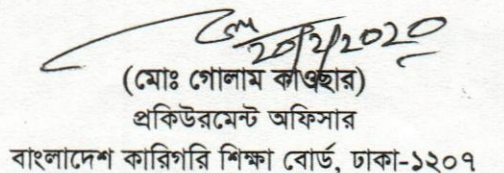 20/2/2020
(মোঃ গোলাম কাওছার)
প্রকিউরমেন্ট অফিসার
বাংলাদেশ কারিগরি শিক্ষা বোর্ড, ঢাকা-১২০৭